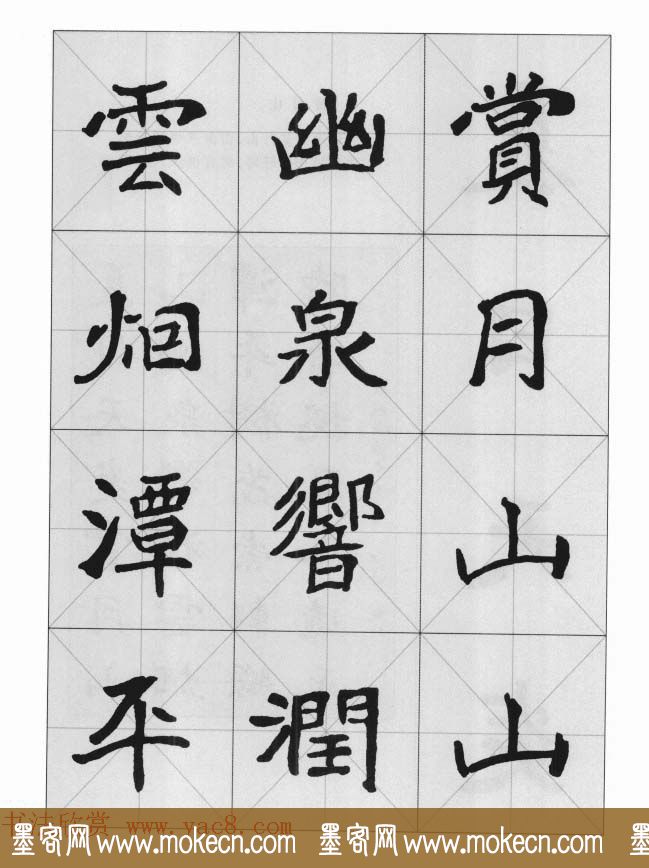 賞月山山
幽泉響潤
雲烟潭平
书法欣赏 www.yac8.com
墨客网 www.mokecn.com 墨客网 www.mokecn.com